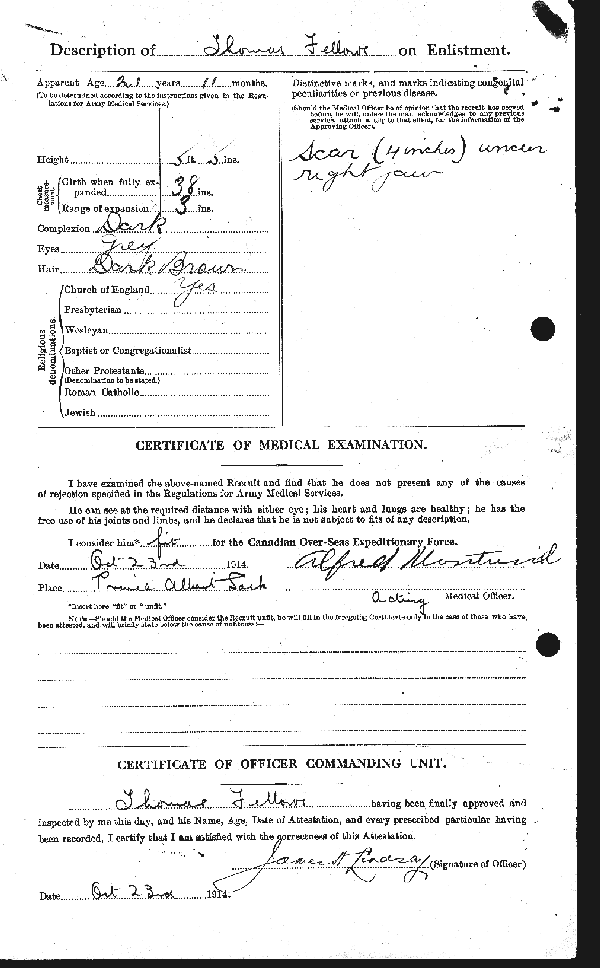 Description of Thomas Fellows on Enlistment.
Apparent Age 21 years 11 months.
(To be determined according to the instructions given in the Regu-
lations for Army Medical Services.)
Height 5 ft. 5 ins.
Chest measure-ment.
Girth when fully ex-
panded 38 ins.
Range of expansion 3 ins.
Complexion Dark
Eyes Grey
Hair Dark Brown
Religious denominations.
Church of England Yes
Presbyterian
Wesleyan
Baptist or Congregationalist
Other Protestants
(Denomination to be stated.)
Roman Catholic
Jewish
Distinctive marks, and marks indicating congenital
peculiarities or previous disease.
(Should the Medical Officer be of opinion that the recruit has served
before, he will, unless the man acknowledges to any previous
service, attach a slip to that effect, for the information of the
Approving Officer).
Scar (4 inches) under
right jaw
CERTIFICATE OF MEDICAL EXAMINATION.
I have examined the above-named Recruit and find that he does not present any of the causes
of rejection specified in the Regulations for Army Medical Services.
He can see at the required distance with either eye; his heart and lungs are healthy; he has the
free use of his joints and limbs, and he declares that he is not subject to fits of any description.
I consider him* fit for the Canadian Over-Seas Expeditionary Force.
Date Oct 23rd 1914.
Place Prince Albert Sask
Alfred
Acting Medical Officer.
*Insert here "fit" or "unfit."
NOTE.—Should the Medical Officer consider the Recruit unfit, he will fill in the foregoing Certificate only in the case of those who have
been attested, and will briefly state below the cause of unfitness:—
CERTIFICATE OF OFFICER COMMANDING UNIT.
Thomas Fellows having been finally approved and
inspected by me this day, and his Name, Age, Date of Attestation, and every prescribed particular having
been recorded, I certify that I am satisfied with the correctness of this Attestation.
James H Lindsay (Signature of Officer)
Date Oct 23rd 1914.